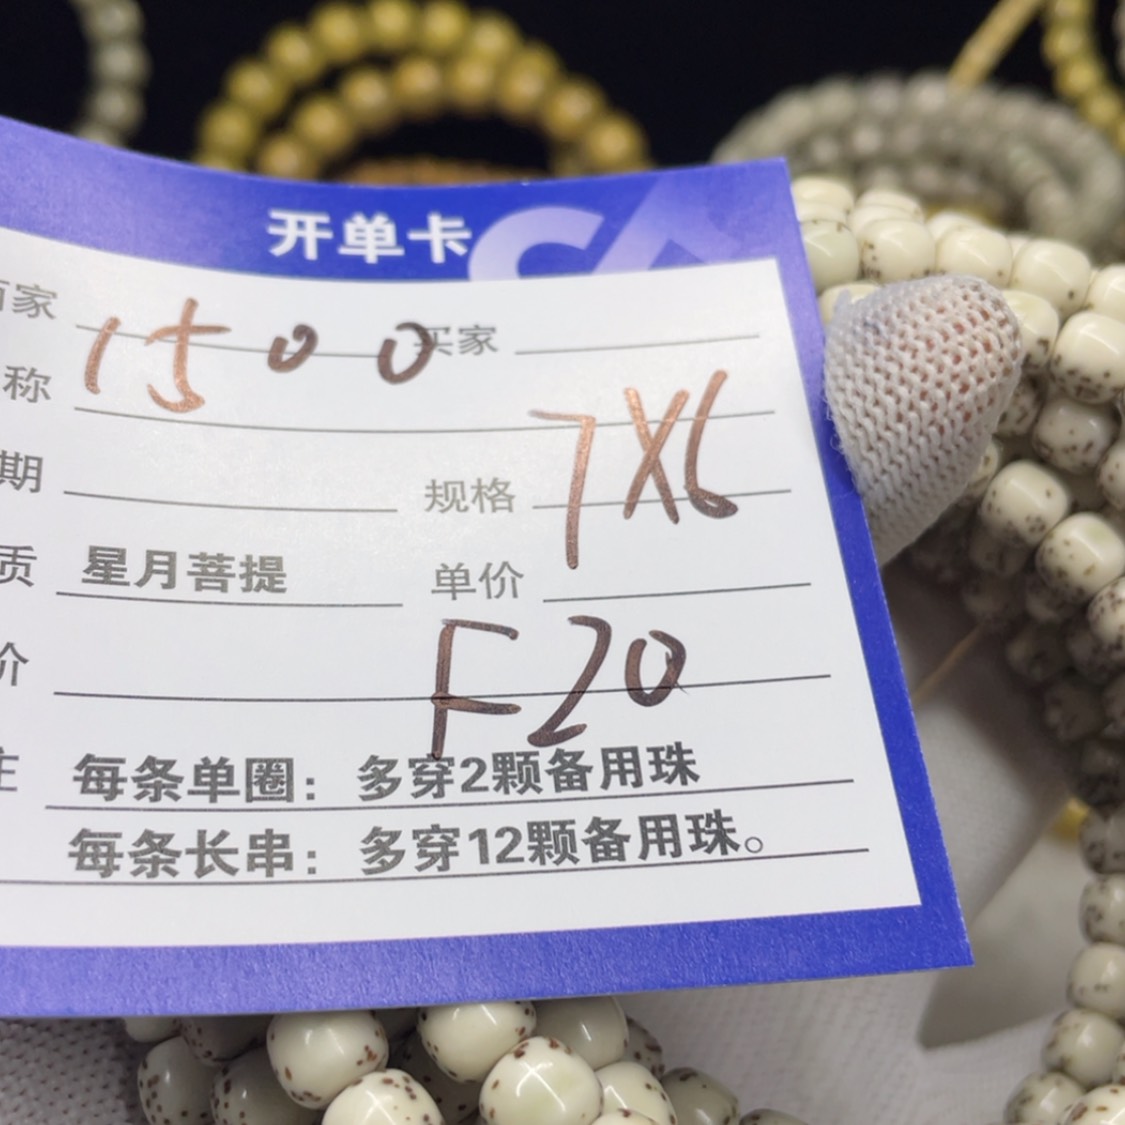 开单卡
百家 1500 买家
称
期 规格 7X6
质 星月菩提 单价
价 F20
注 每条单圈：多穿2颗备用珠
每条长串：多穿12颗备用珠。